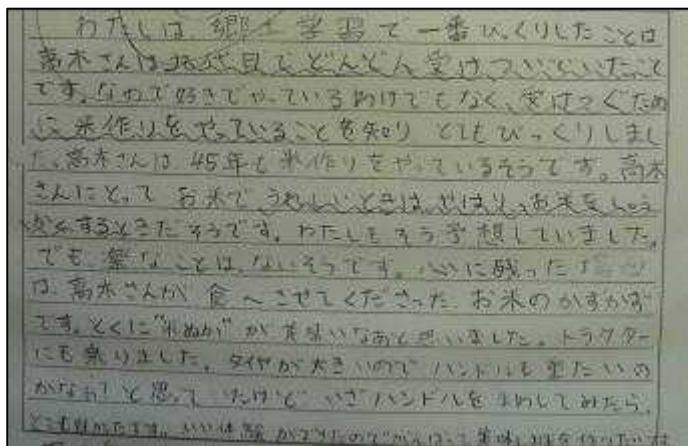 わたしは、郷土学習で一番びっくりしたことは
高木さんは16代目でどんどん受けついでいたこと
です。なので好きでやっているわけでもなく、受けつぐため
に米作りをやっていることを知りとてもびっくりしまし
た。高木さんは45年も米作りをやっているそうです。高木
さんにとってお米でうれしいときはやはり、お米をしゅう
かくするときだそうです。わたしもそう予想していました。
でも楽なことは、ないそうです。心に残った
は、高木さんが食べさせてくださったお米のかずかず
です。とくに"米ぬか"が美味いなあと思いました。トラクター
にも乗りました。タイヤが大きいのでハンドルも重たいの
かなぁ?と思っていたけどいざハンドルをまわしてみたら、
とても軽かったです。いい体験ができたのでがんばって美味しい